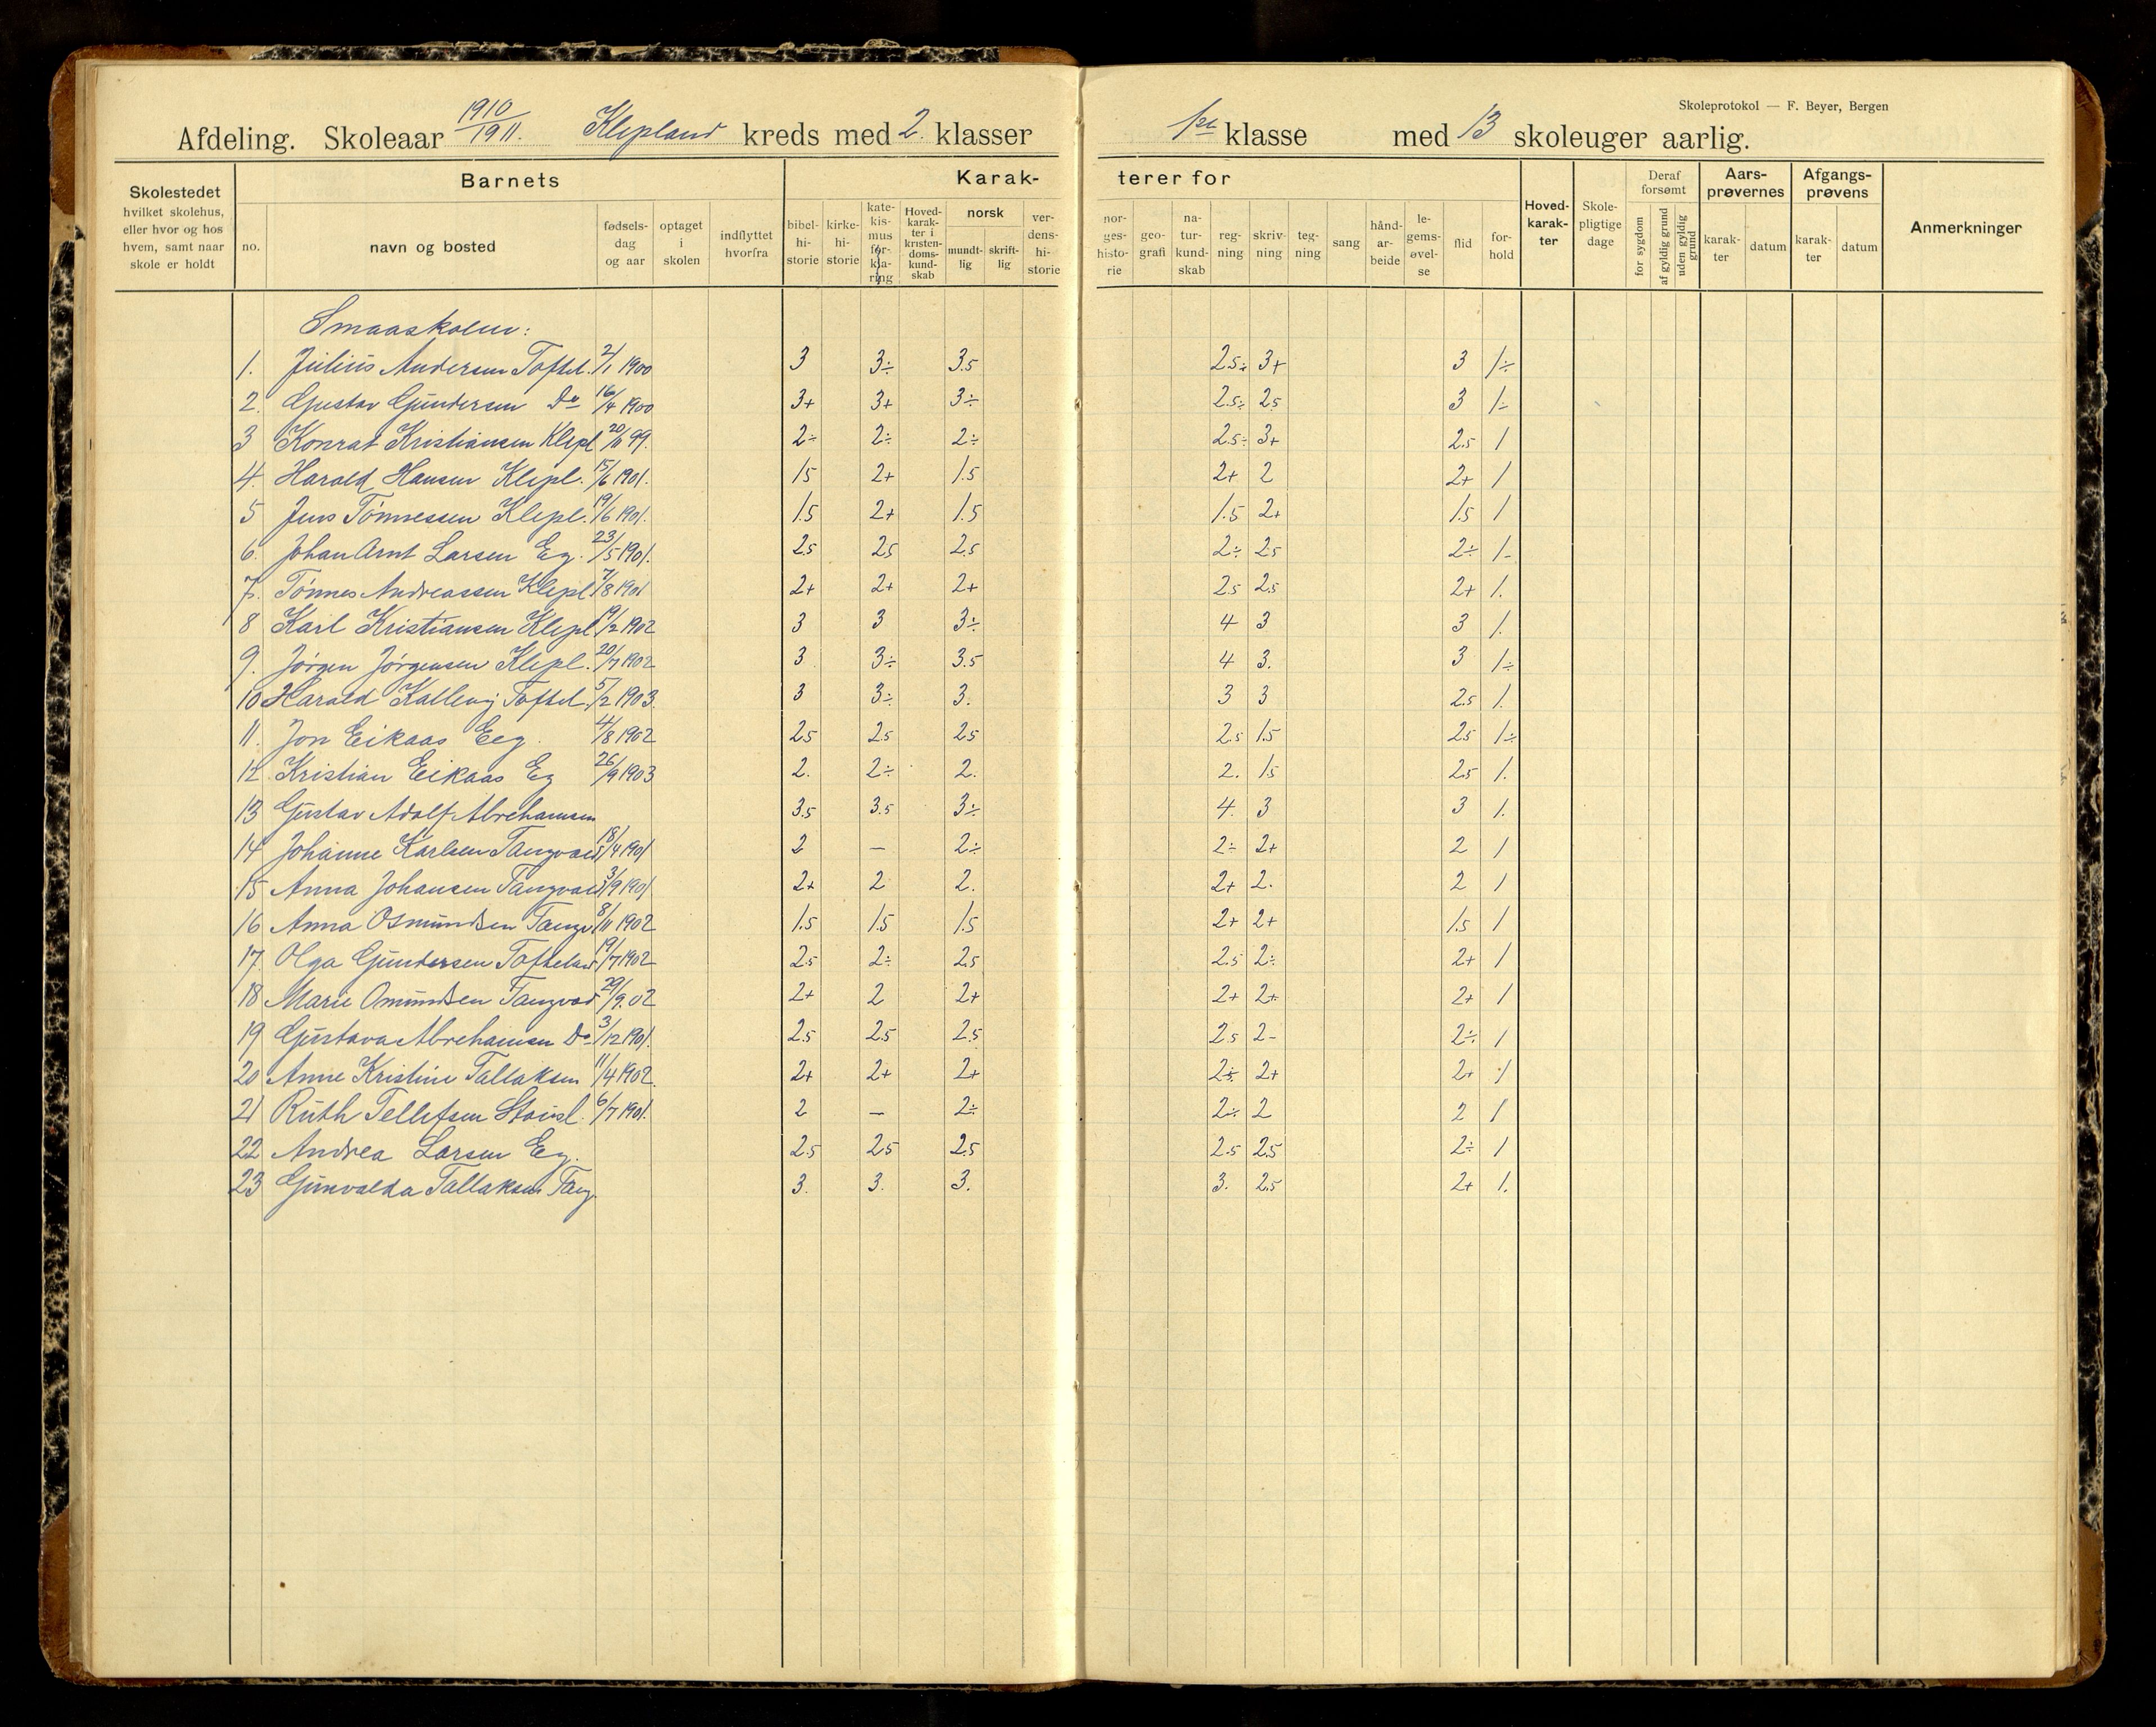 Skoleprotokol — F. Beyer, Bergen
Afdeling. Skoleaar 1910/1911. Klepland kreds med 2. klasser 1ste klasse med 13 skoleuger aarlig.
Skolestedet hvilket skolehus, eller hvor og hos hvem, samt naar skole er holdt
Barnets
no. navn og bosted fødselsdag og aar optaget i skolen indflyttet hvorfra
Karakterer for
bibelhistorie kirkehistorie katekismus forklaring Hovedkarakter i kristendomskundskab norsk mundtlig skriftlig verdenshistorie
norgeshistorie geografi naturkundskab regning skrivning tegning sang håndarbeide legemsøvelse flid forhold
Hovedkarakter Skolepligtige dage Deraf forsømt for sygdom af gyldig grund uden gyldig grund
Aarsprøvernes karakter datum Afgangsprøvens karakter datum Anmerkninger
Smaaskolen:
1. Julius Andersen Toftel. 2/1 1900 3 3÷ 3.5 2.5÷ 3+ 3 1÷
2. Gustav Gundersen Do 16/4 1900 3+ 3+ 3÷ 2.5÷ 2.5 3 1÷
3 Konrat Kristiansen Klepl 20/11 99. 2÷ 2÷ 2÷ 2.5÷ 3+ 2.5 1
4. Harald Hansen Klepl. 15/6 1901. 1.5 2+ 1.5 2+ 2 2+ 1
5 Jens Tönnessen Klepl. 19/6 1901. 1.5 2+ 1.5 1.5 2+ 1.5 1
6. Johan Arnt Larsen Eg. 23/5 1901. 2.5 2.5 2.5 2÷ 2.5 2÷ 1-
7. Tönnes Andreassen Klepl 7/8 1901 2+ 2+ 2+ 2.5 2.5 2+ 1.
8 Karl Kristiansen Klepl 19/2 1902 3 3 3÷ 4 3 3 1.
9. Jörgen Jörgensen Klepl. 20/7 1902 3 3÷ 3.5 4 3. 3 1÷
10 Harald Kallevij Toftel. 5/2 1903. 3 3÷ 3. 3 3 2.5 1.
11. Jon Eikaas Eeg. 4/8 1902 2.5 2.5 2.5 2.5 1.5 2.5 1÷
12. Kristian Eikaas Eg 26/9 1903 2. 2÷ 2. 2. 1.5 2.5 1.
13 Gustav Adolf Abrehamsen 3.5 3.5 3÷ 4. 3 3 1.
14 Johanne Karlsen Tangvald 18/4 1901 2 — 2÷ 2÷ 2+ 2 1
15 Anna Johansen Tangvald 3/9 1901 2+ 2 2. 2+ 2. 2 1
16 Anna Osmundsen Tangv 8/11 1902 1.5 1.5 1.5 2+ 2+ 1.5 1
17 Olga Gundersen Tofteland 19/7 1902 2.5 2÷ 2.5 2.5 2÷ 2+ 1
18 Marie Omundsen Tangvad 29/9.02 2+ 2 2+ 2+ 2+ 2+ 1
19 Gustava Abrehamsen Do 3/12 1901. 2.5 2.5 2.5 2.5 2- 2÷ 1
20 Anne Kristine Tallaksen 11/4 1902. 2+ 2+ 2+ 2÷ 2+ 2+ 1
21 Ruth Tellefsen Stousl. 6/7 1901. 2 — 2÷ 2÷ 2 2 1
22 Andrea Larsen Eg. 2.5 2.5 2.5 2.5 2.5 2÷ 1
23 Gunvalda Tallaksen Tang. 3. 3. 3. 3. 2.5 2+ 1.